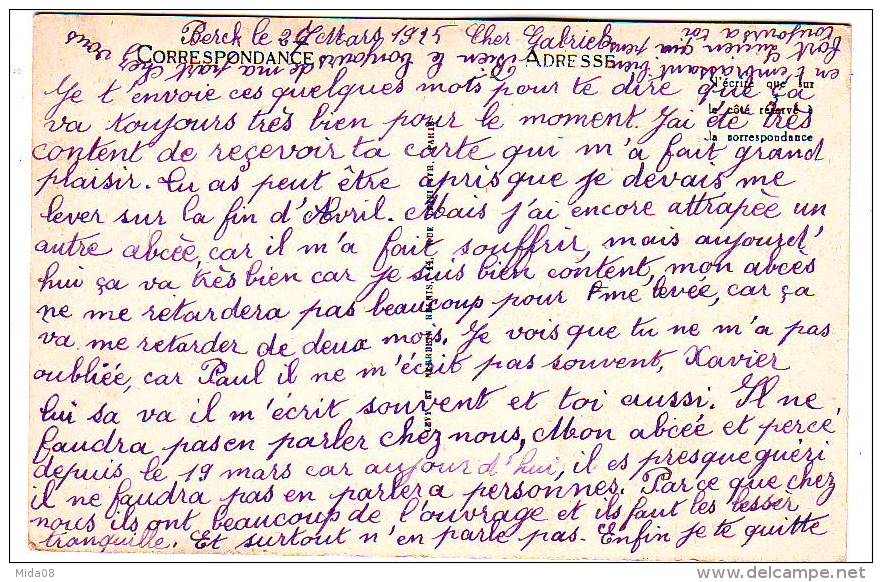 Berck le 27 Mars 1925 Cher Gabriel
CORRESPONDANCE
ADRESSE
N'écrire que sur
le côté réservé à
la correspondance
Je t'envoie ces quelques mots pour te dire que ça
va toujours très bien pour le moment. J'ai été très
content de reçevoir ta carte qui m'a fait grand
plaisir. Tu as peut être apris que je devais me
lever sur la fin d'Avril. Mais j'ai encore attrapée un
autre abcée, car il m'a fait souffrir, mais aujourd'
hui ça va très bien car je suis bien content, mon abcès
ne me retardera pas beaucoup pour me levée, car ça
va me retarder de deux mois. Je vois que tu ne m'a pas
oubliée, car Paul il ne m'écrit pas souvent, Xavier
lui sa va il m'écrit souvent et toi aussi. Il ne
faudra pas en parler chez nous, Mon abcée et percé
depuis le 19 mars car aujourd'hui, il es presque guéri
il ne faudra pas en parler a personnes. Parce que chez
nous ils ont beaucoup de l'ouvrage et ils faut les lesser
tranquille. Et surtout n'en parle pas. Enfin je te quitte
en t'embrassant bien
fort Lucien qui pense
toujours a toi
le bonjours de ma part chez vous
LEVY ET NEURDEIN REUNIS, 44, RUE LETELLIER, PARIS
Mida08
www.delcampe.net